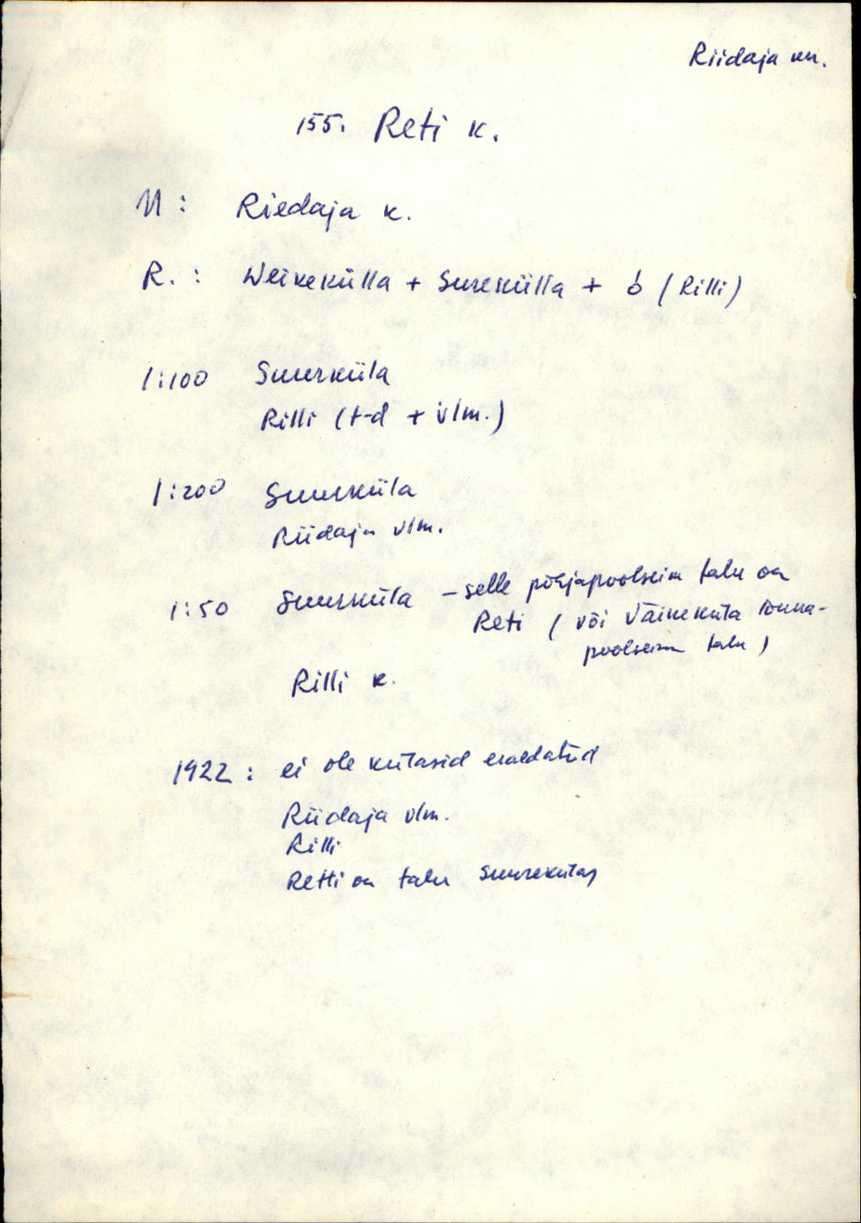 Riidaja kn.
155. Reti k.
M: Riedaja k.
R.: Weikekülla + Surekülla + 6 (Rilli)
1:100 Suurküla
Rilli (t-d + vlm.)
1:200 Suurküla
Riidaja vlm.
1:50 Suurküla - selle põhjapoolseim talu on
Reti (või Väikeküla lõuna-
poolseim talu)
Rilli k.
1922: ei ole külasid eraldatud
Riidaja vlm.
Rilli
Retti on talu Suurekülas